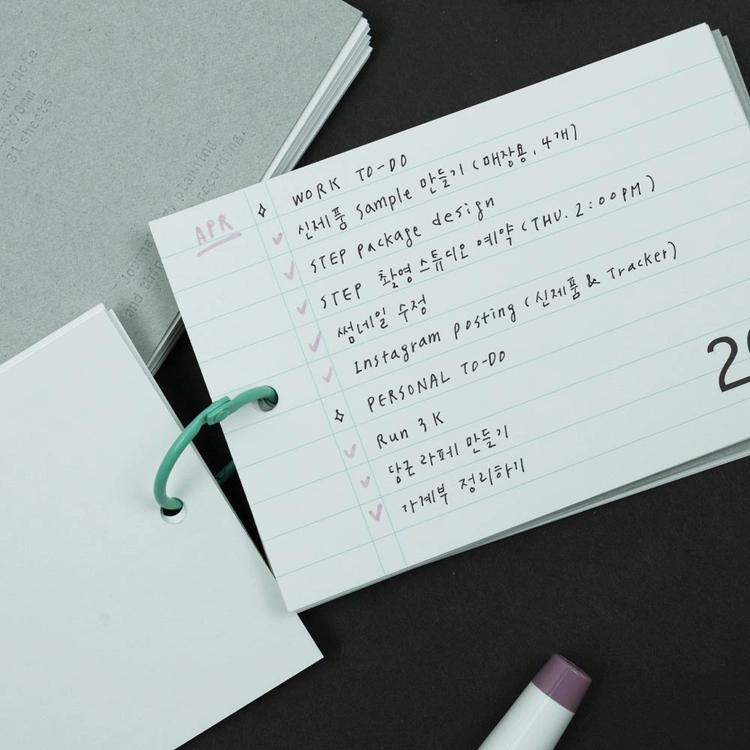 31 sheets
planning
recording.
APR
WORK TO-DO
신제품 sample 만들기 (매장용, 4개)
STEP package design
STEP 촬영 스튜디오 예약 (THU. 2:00PM)
썸네일 수정
Instagram posting (신제품 & Tracker)
PERSONAL TO-DO
Run 3K
당근 라페 만들기
가계부 정리하기